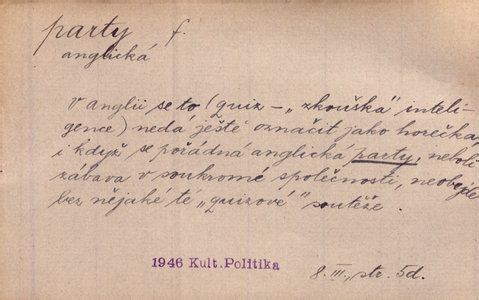 party f.
anglická
V anglii se to (quiz – „zkouška" inteli-
gence) nedá ještě označit jako horečka,
i když se pořádná anglická party, neboli
zábava v soukromé společnosti, neobejde
bez nějaké té „quizové" soutěže.
1946 Kult. Politika
8. III., str. 5d.